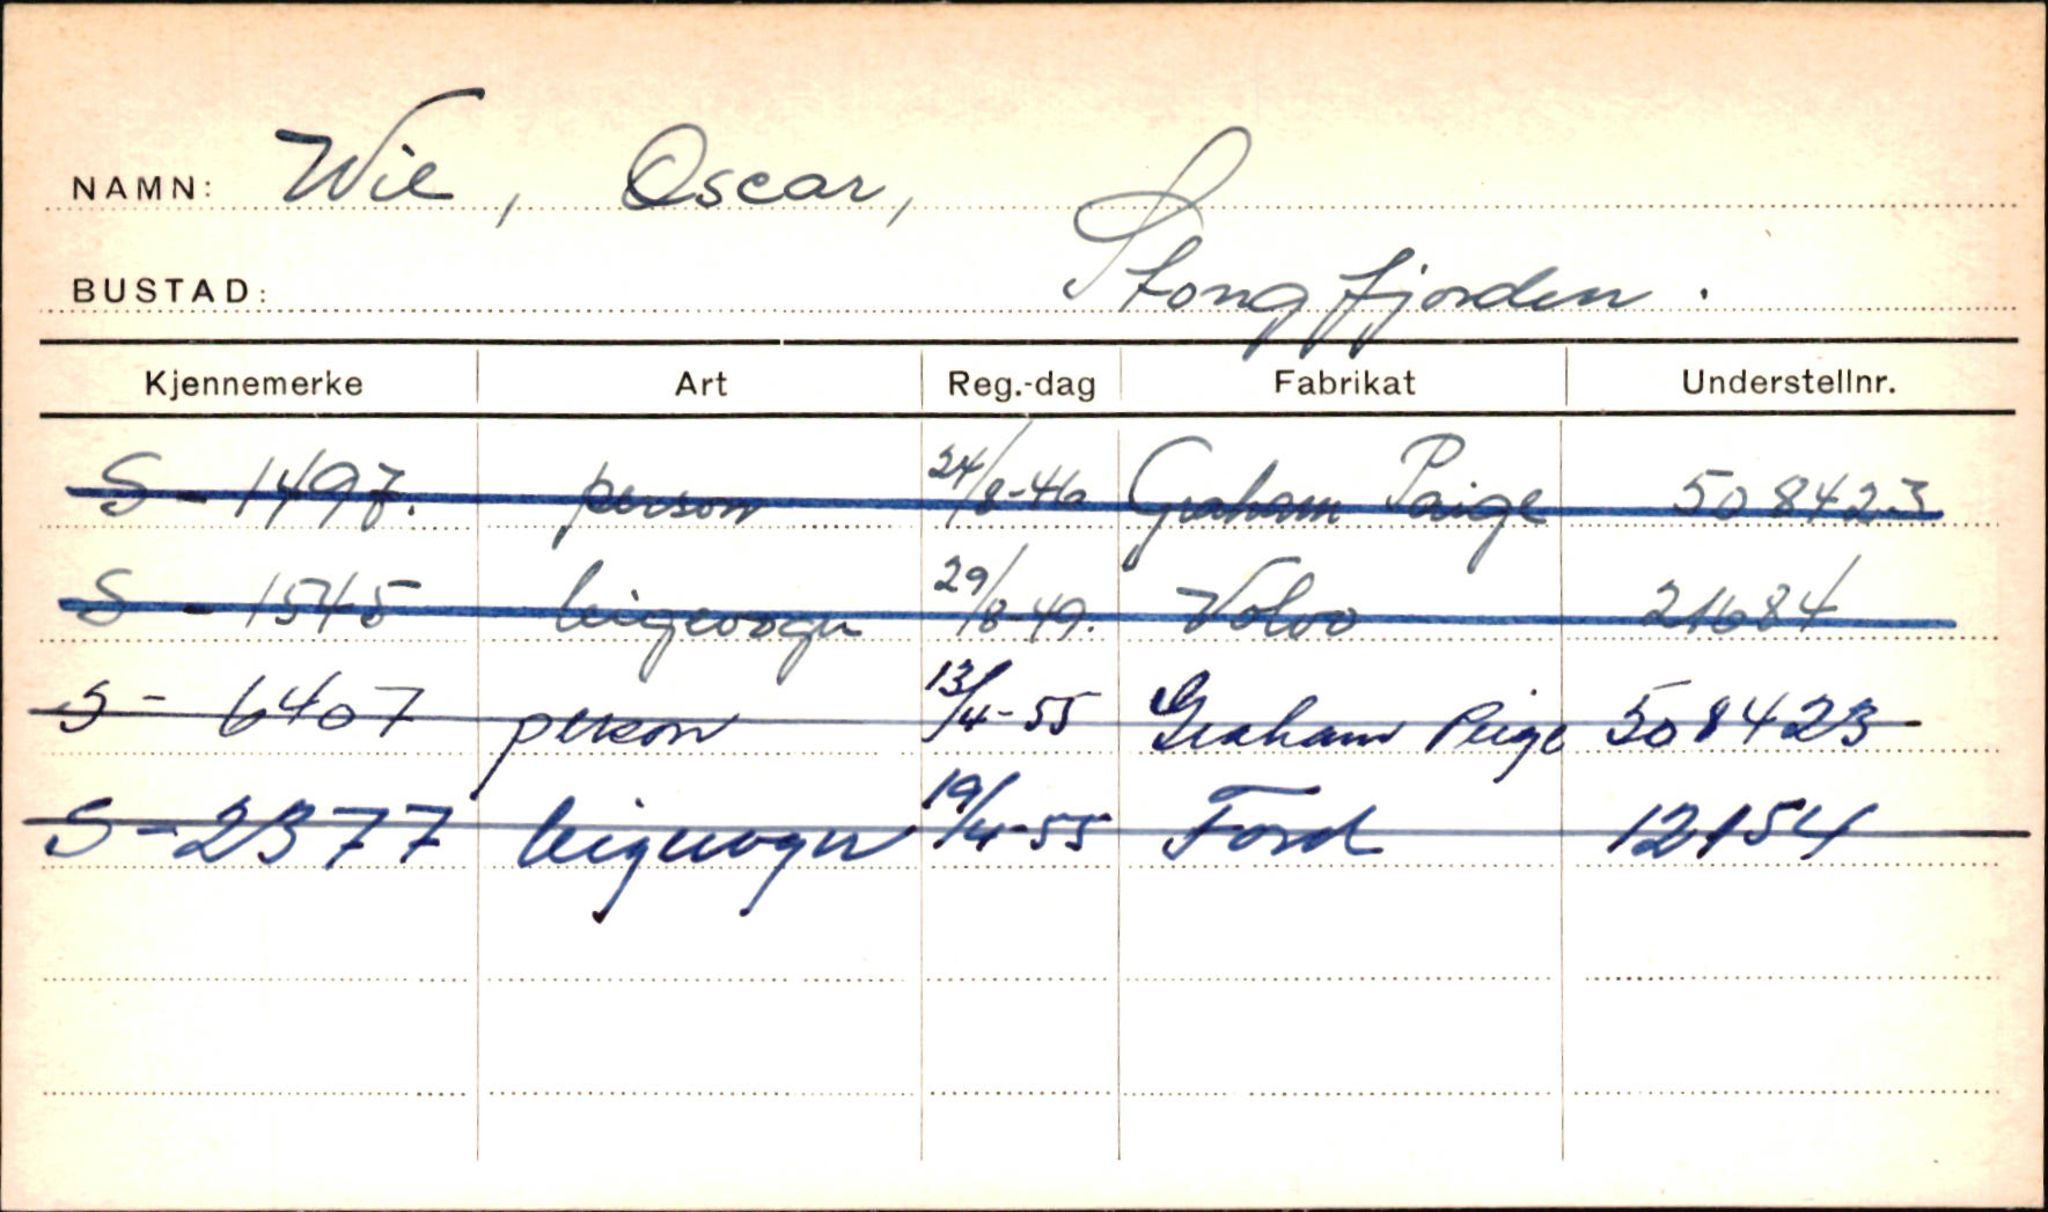 NAMN: Wie, Oscar,
BUSTAD: Stongfjorden.
Kjennemerke Art Reg.-dag Fabrikat Understellnr.
S - 1497. person 24/8-46 Graham Paige 508423
S - 1545 leigevogn 29/8-49. Volvo 21684
S - 6407 person 13/4-55 Graham Peige 508423
S - 2377 leigevogn 19/4-55 Ford 12154